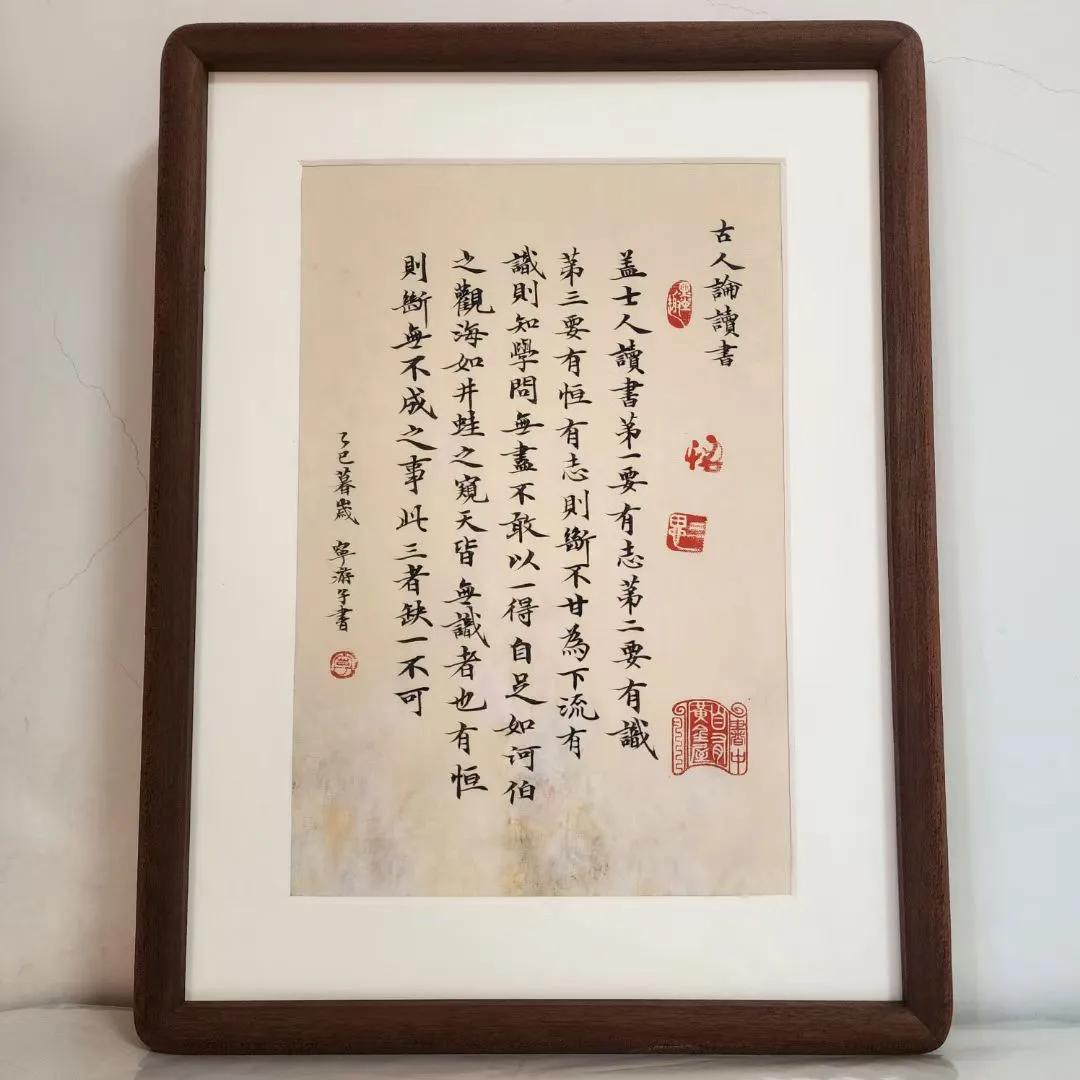 古人論讀書
盖士人讀書第一要有志第二要有識
第三要有恒有志則斷不甘為下流有
識則知學問無盡不敢以一得自足如河伯
之觀海如井蛙之窺天皆無識者也有恒
則斷無不成之事此三者缺一不可
乙巳暮歲 寧游子書
書中
自有
黃金屋